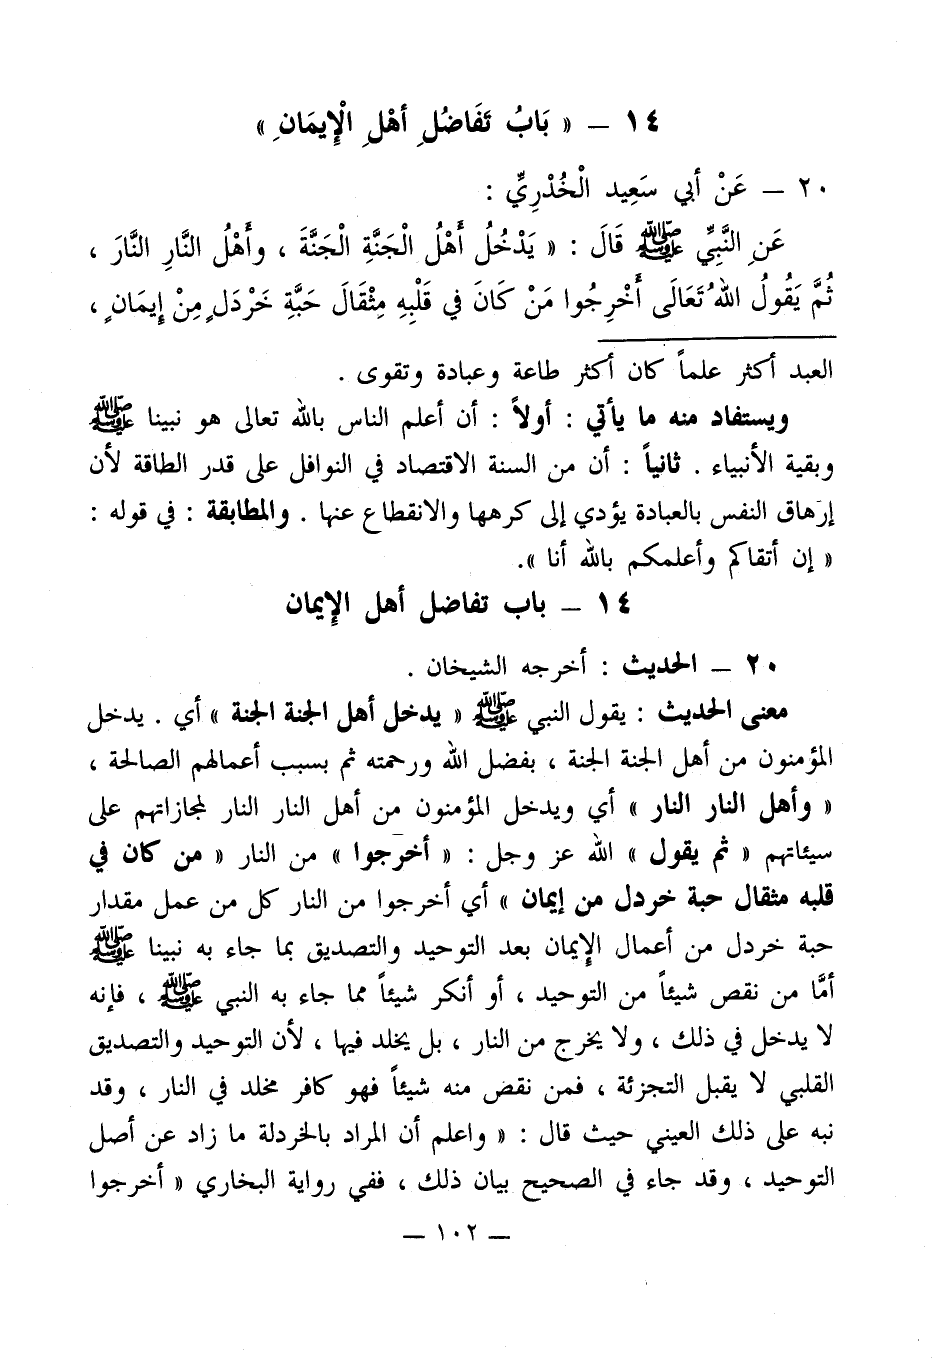 ١٤ — « بَابُ تَفَاضُلِ أهْلِ الْإِيمَانِ »
٢٠ — عَنْ أبي سَعِيد الْخُدْرِيِّ :
عَنِ النَّبِيِّ ﷺ قَالَ : « يَدْخُلُ أَهْلُ الْجَنَّةِ الْجَنَّةَ ، وأَهْلُ النَّارِ النَّارَ ،
ثُمَّ يَقُولُ اللهُ تَعَالَى أَخْرِجُوا مَنْ كَانَ في قَلْبِهِ مِثْقَالَ حَبَّةِ خَرْدَلٍ مِنْ إيمَانٍ ،
العبد أكثر علماً كان أكثر طاعة وعبادة وتقوى .
ويستفاد منه ما يأتي : أولاً : أن أعلم الناس بالله تعالى هو نبينا ﷺ
وبقية الأنبياء . ثانياً : أن من السنة الاقتصاد في النوافل على قدر الطاقة لأن
إرهاق النفس بالعبادة يؤدي إلى كرهها والانقطاع عنها . والمطابقة : في قوله :
« إن أتقاكم وأعلمكم بالله أنا ».
١٤ — باب تفاضل أهل الإيمان
٢٠ — الحديث : أخرجه الشيخان .
معنى الحديث : يقول النبي ﷺ « يدخل أهل الجنة الجنة » أي . يدخل
المؤمنون من أهل الجنة الجنة ، بفضل الله ورحمته ثم بسبب أعمالهم الصالحة ،
« وأهل النار النار » أي ويدخل المؤمنون من أهل النار النار لمجازاتهم على
سيئاتهم « ثم يقول » الله عز وجل : « أخرجوا » من النار « من كان في
قلبه مثقال حبة خردل من إيمان » أي أخرجوا من النار كل من عمل مقدار
حبة خردل من أعمال الإيمان بعد التوحيد والتصديق بما جاء به نبينا ﷺ
أمَّا من نقص شيئاً من التوحيد ، أو أنكر شيئاً مما جاء به النبي ﷺ ، فإنه
لا يدخل في ذلك ، ولا يخرج من النار ، بل يخلد فيها ، لأن التوحيد والتصديق
القلبي لا يقبل التجزئة ، فمن نقص منه شيئاً فهو كافر مخلد في النار ، وقد
نبه على ذلك العيني حيث قال : « واعلم أن المراد بالخردلة ما زاد عن أصل
التوحيد ، وقد جاء في الصحيح بيان ذلك ، ففي رواية البخاري « أخرجوا
— ١٠٢ —